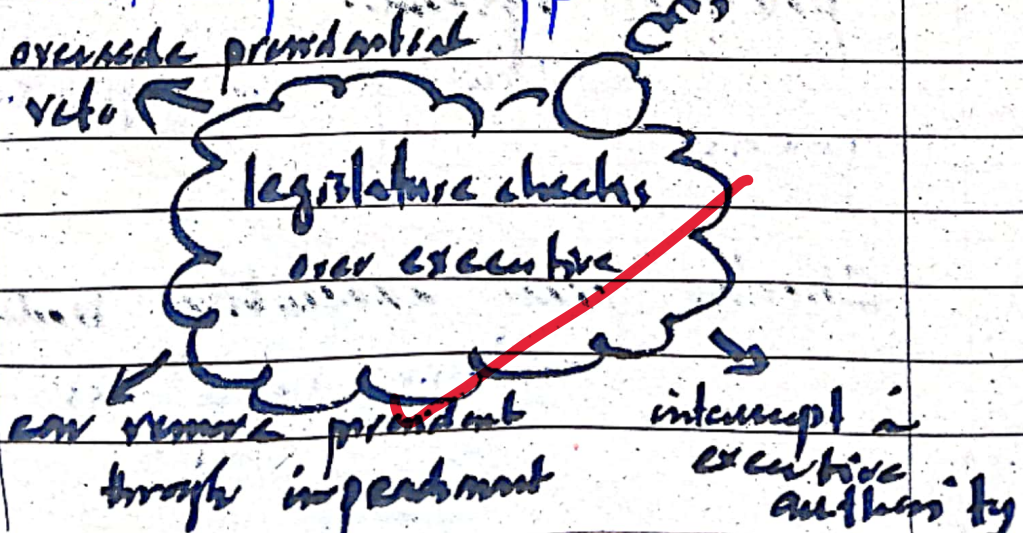 override presidential
veto
legislature checks
over executive
can remove president
through impeachment
interrupt in
executive
authority